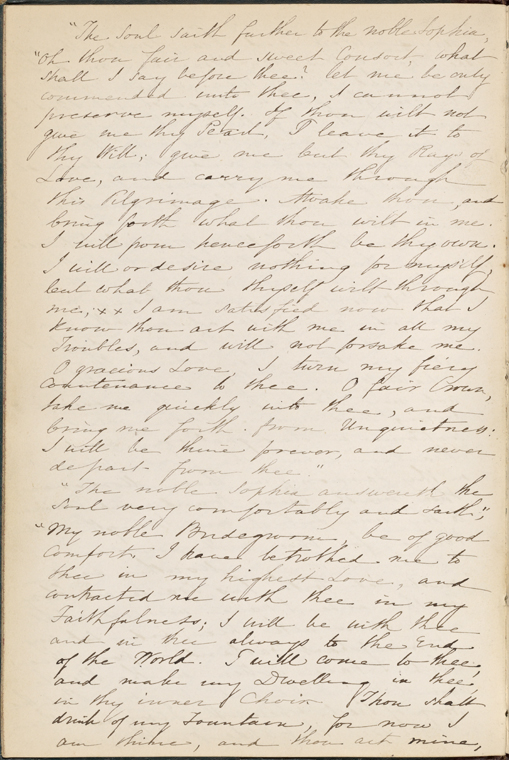 "The Soul saith further to the noble Sophia,
"Oh thou fair and sweet Consort, what
shall I say before thee? let me be only
commended unto thee, I cannot
preserve myself. If thou wilt not
give me thy Pearl, I leave it to
thy Will; give me but thy Rays of
Love, and carry me through
this Pilgrimage. Awake thou, and
bring forth what thou wilt in me.
I will from henceforth be thy own.
I will or desire nothing for myself,
but what thou thyself wilt through
me; x x I am satisfied now that I
know thou art with me in all my
Troubles, and will not forsake me.
O gracious Love, I turn my fiery
Countenance to thee. O fair Crown,
take me quickly into thee, and
bring me forth from Unquietness:
I will be thine forever, and never
depart from thee."
"The noble Sophia answereth the
Soul very comfortably and saith",
"My noble Bridegroom, be of good
comfort. I have betrothed me to
thee in my highest Love, and
contracted me with thee in my
Faithfulness; I will be with thee
and in thee always to the End
of the World. I will come to thee
and make my Dwelling in thee
in thy inner Choir. Thou shalt
drink of my Fountain, for now I
am thine, and thou art mine,